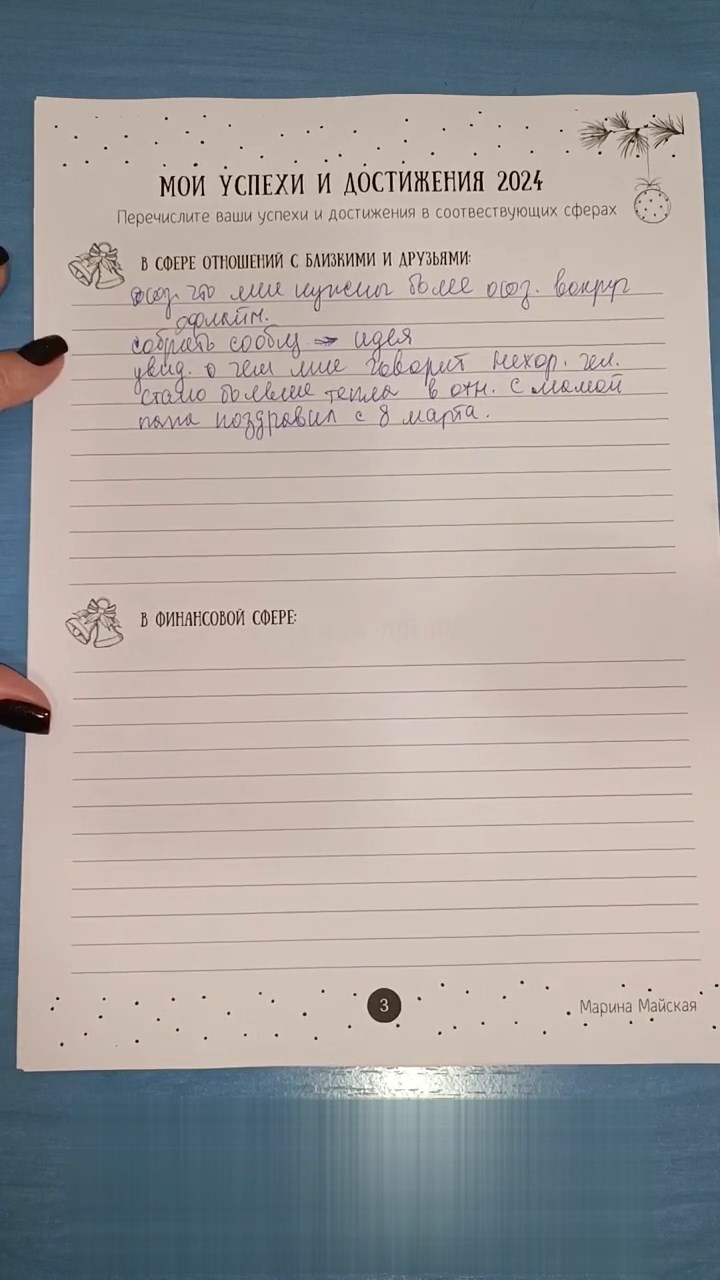 МОИ УСПЕХИ И ДОСТИЖЕНИЯ 2024
Перечислите ваши успехи и достижения в соотвествующих сферах
В СФЕРЕ ОТНОШЕНИЙ С БЛИЗКИМИ И ДРУЗЬЯМИ:
осоз. что мне нужны более осоз. вокруг
офлайн.
собрать сообщ → идея
увид. о чем мне говорит нехор. чел.
стало больше тепла в отн. с мамой
папа поздравил с 8 марта.
В ФИНАНСОВОЙ СФЕРЕ:
3
Марина Майская